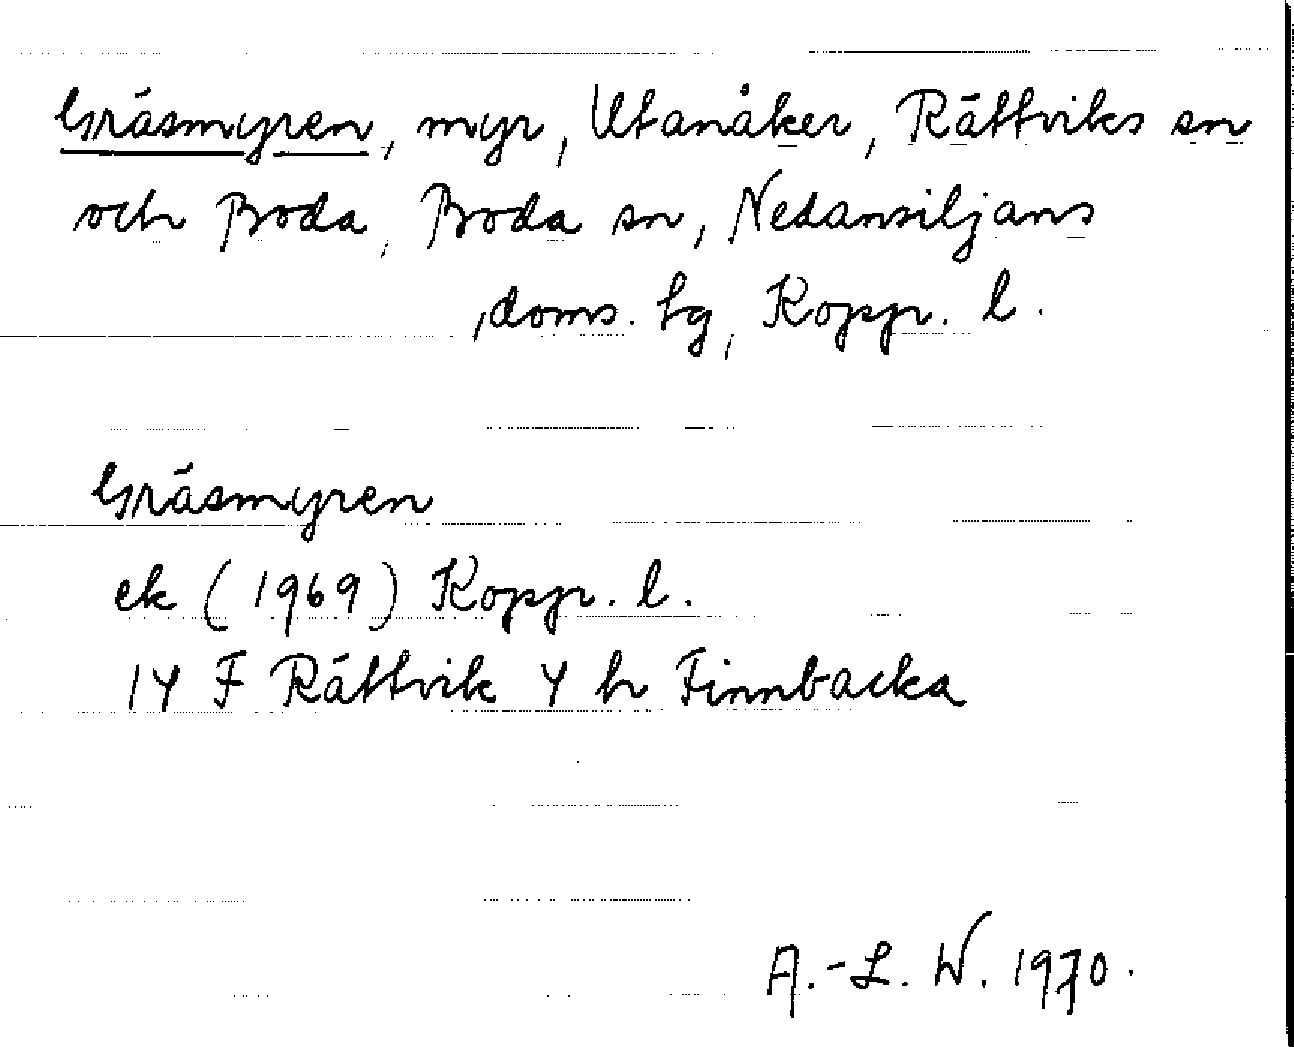 Gräsmyren, myr, Utanåker, Rättviks sn
och Boda, Boda sn, Nedansiljans
doms. hg, Kopp. l.
Gräsmyren
ek (1969) Kopp. l.
14 F Rättvik 4 h Finnbacka
A.-L. W. 1970.